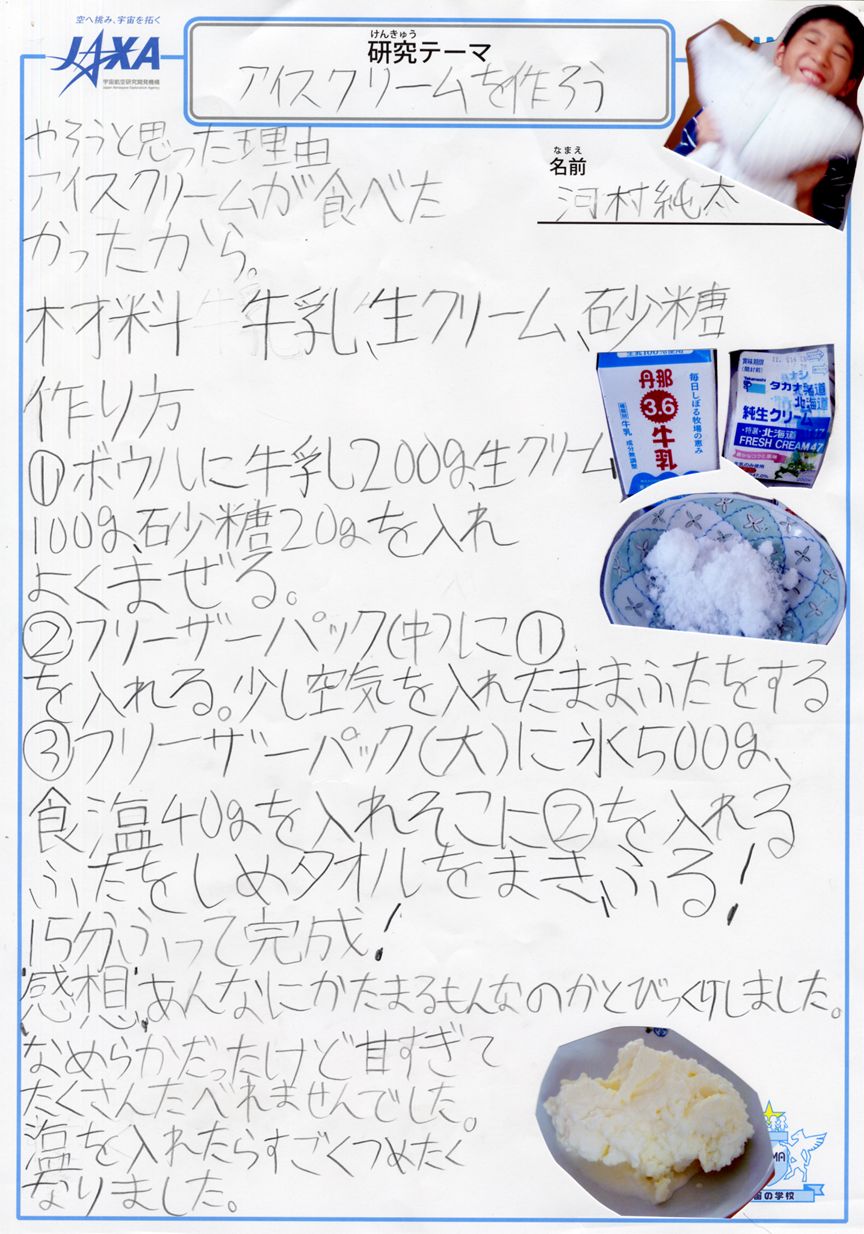 空へ挑み、宇宙を拓く
JAXA
宇宙航空研究開発機構
Japan Aerospace Exploration Agency
けんきゅう
研究テーマ
アイスクリームを作ろう
やろうと思った理由
アイスクリームが食べた
かったから。
なまえ
名前
河村純太
材料 牛乳、生クリーム、砂糖
作り方
①ボウルに牛乳200g、生クリーム
100g、砂糖20gを入れ
よくまぜる。
生乳100%使用
丹那
3.6
牛乳
毎日しぼる牧場の恵み
種類別
牛乳 成分無調整
賞味期限
(開封前)
Takanashi
タカナシ
北海道
純生クリーム
・特選・北海道
FRESH CREAM 47
②フリーザーパック(中)に①
を入れる。少し空気を入れたままふたをする
③フリーザーパック(大)に氷500g、
食塩40gを入れそこに②を入れる
ふたをしめタオルをまきふる!
15分ふって完成!
感想、あんなにかたまるもんなのかとびっくりしました。
なめらかだったけど甘すぎて
たくさんたべれませんでした。
塩を入れたらすごくつめたく
なりました。
宙の学校